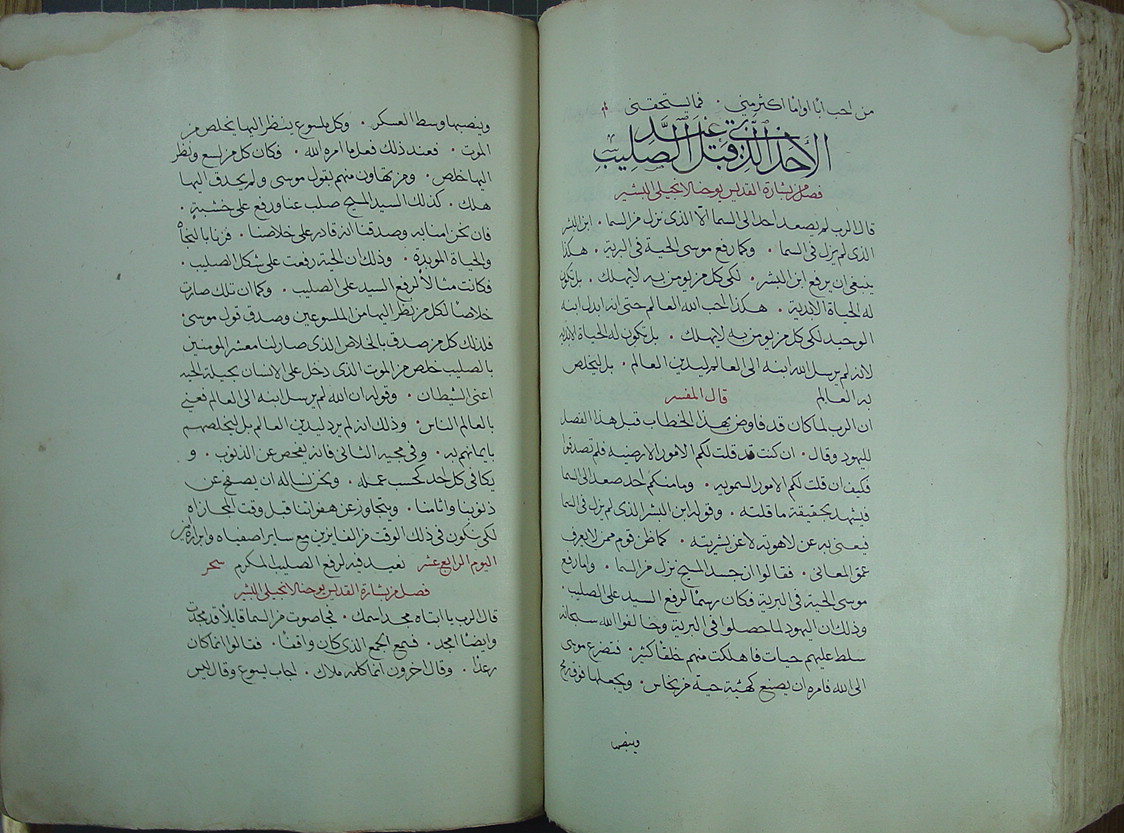 من احب ابا او اما اكثر مني . فما يستحقني
الاحد الذي قبل عيد الصليب
فصل من بشارة القديس يوحنا الانجيلي البشير
قال الرب لم يصعد احد الى السما الا الذي نزل من السما . ابن البشر
الذي لم يزل في السما . وكما رفع موسى الحية في البرية . هكذا
ينبغي ان يرفع ابن البشر . لكي كل من يومن به لا يهلك . بل تكون
له الحياة الابدية . هكذا احب الله العالم حتى انه ابدل ابنه
الوحيد لكي كل من يومن به لا يهلك . بل تكون له الحياة الابدية
لانه لم يرسل الله ابنه الى العالم ليدين العالم . بل ليخلص
به العالم قال المفسر
ان الرب لما كان قد فاوض بهذا الخطاب قبل هذا الفصل
لليهود وقال . ان كنت قد قلت لكم الامور الارضية فلم تصدقوا
فكيف ان قلت لكم الامور السموية . وما منكم احد صعد الى السما
فيشهد بحقيقة ما قلته . وقوله ابن البشر الذي لم يزل في السما
فيعني به عن لاهوته لا عن بشريته . كما ظن قوم ممن لا يعرف
عمق المعاني . فقالوا ان جسد المسيح نزل من السما . واما رفع
موسى الحية في البرية فكان رسما لرفع السيد على الصليب .
وذلك ان اليهود لما حصلوا في البرية وخالفوا الله سبحانه
سلط عليهم حيات فاهلكت منهم خلقا كثير . فتضرع موسى
الى الله فامره ان يصنع كهيئة حية من نحاس . ويجعلها فوق رمح
وينصبها
وينصبها وسط العسكر . وكل ملسوع ينظر اليها يخلص من
الموت . فعند ذلك فعل ما امره الله . فكان كل من لسع ونظر
اليها خلص . ومن تهاون منهم بقول موسى ولم يحدق اليها
هلك . كذلك السيد المسيح صلب عنا ورفع على خشبة .
فان نحن امنا به وصدقنا انه قادر على خلاصنا . فزنا بالنجاة
والحياة الموبدة . وذلك ان الحية رفعت على شكل الصليب .
فكانت مثالا لرفع السيد على الصليب . وكما ان تلك صارت
خلاصا لكل من نظر اليها من الملسوعين وصدق قول موسى .
فلذلك كل من صدق بالخلاص الذي صار لنا معشر المومنين
بالصليب خلص من الموت الذي دخل على الانسان بحيلة الحية
اعني الشيطان . وقوله ان الله لم يرسل ابنه الى العالم فعني
بالعالم الناس . وذلك انه لم يرد ليدين العالم بل ليخلصهم
بايمانهم به . وفي مجيه الثاني فانه يفحص عن الذنوب . و
يكافي كل احد كحسب عمله . ونحن نسال له ان يصفح عن
ذنوبنا واثامنا . ويتجاوز عن هفواتنا قبل وقت المجازاه
لكي نكون في ذلك الوقت من الفايزين مع ساير اصفياه وابراره امين
اليوم الرابع عشر نعيد فيه لرفع الصليب المكرم سحر
فصل من بشارة القديس يوحنا الانجيلي البشير
قال الرب يا ابتاه مجد اسمك . فجا صوت من السما قايلا قد مجدت
وايضا امجد . فسمع الجمع الذي كان واقفا . فقالوا انما كان
رعدا . وقال اخرون انما كلمه ملاك . اجاب يسوع وقال ليس